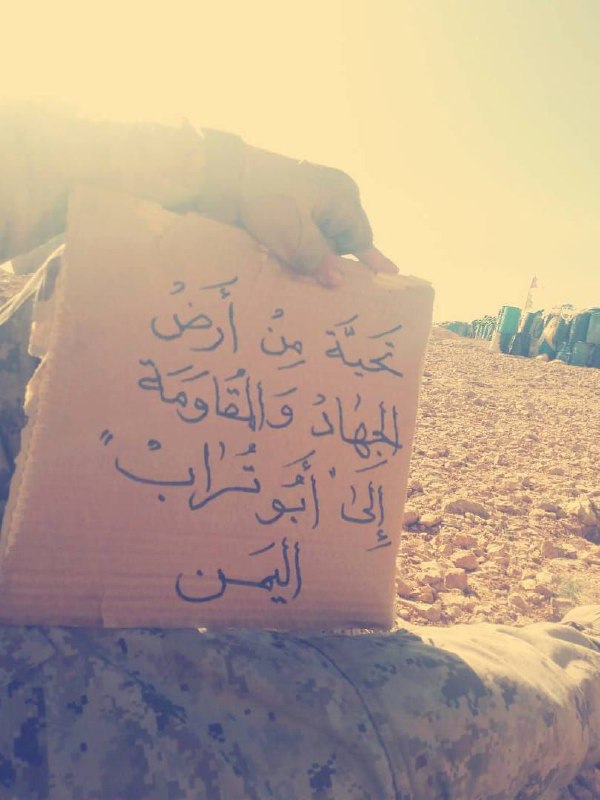 تَحيَّة مِنْ أَرَضُ
الجِهٰادْ وَالمُقَاوَمَة
إِلَىٰ "أَبُو تُرٰابْ"
أليَمَن